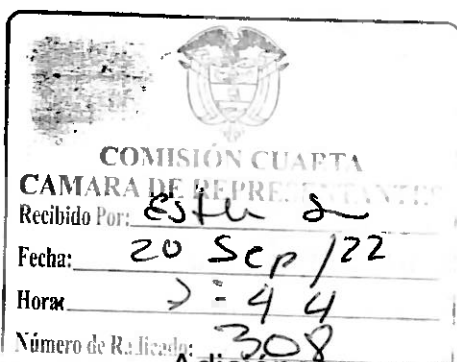 COMISIÓN CUARTA
CAMARA DE REPRESENTANTES
Recibido Por:
Fecha: 20 Sep/22
Hora: 44
Número de Radicado: 308